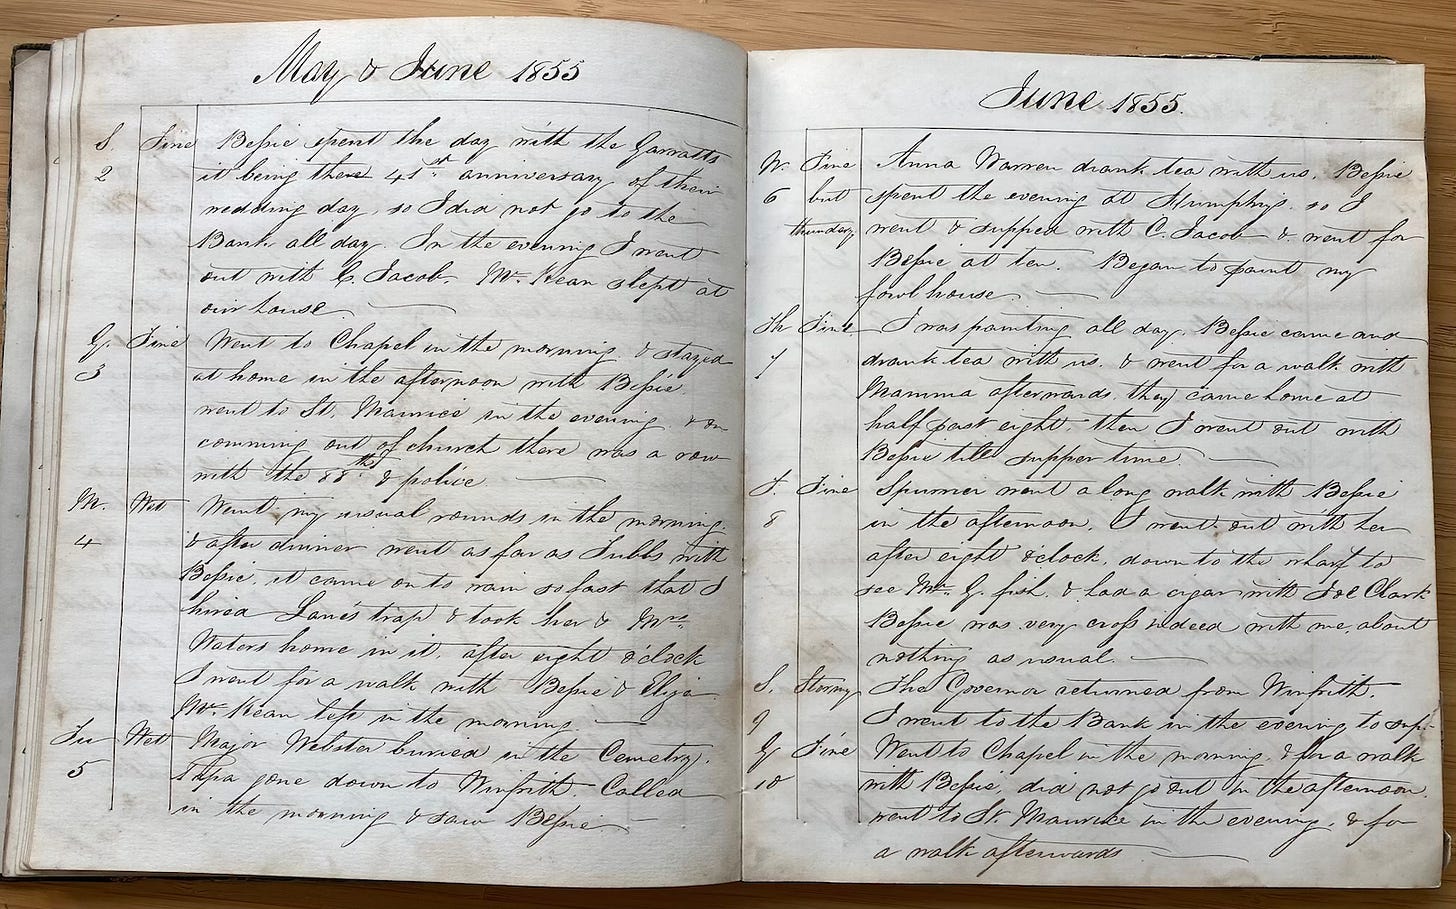 May & June 1855
S. Fine Bessie spent the day with the Garratts
2 it being there 41st anniversary of their
wedding day, so I did not go to the
Bank all day. In the evening I went
out with C. Jacob. Mr. Kean slept at
our house.
G. Fine Went to Chapel in the morning & stayed
3 at home in the afternoon with Bessie
went to St. Maurice in the evening & on
comming out of church there was a row
with the 88th & police
M. Wet Went my usual rounds in the morning.
4 & after dinner went as far as Tubbs with
Bessie, it came on to rain so fast that I
hired Lanes trap & took her & Mrs.
Waters home in it, after eight o'clock
I went for a walk with Bessie & Eliza
Mr. Kean left in the morning
Tu Wet Major Webster buried in the Cemetry.
5 Papa gone down to Winfrith. Called
in the morning & saw Bessie
June 1855.
W. Fine Anna Warren drank tea with us. Bessie
6 but spent the evening at Humphrys. so I
thundery went & supped with C. Jacob & went for
Bessie at ten. Began to paint my
fowl house.
Th Fine I was painting all day. Bessie came and
7 drank tea with us. & went for a walk with
Mamma afterwards. they came home at
half past eight, then I went out with
Bessie till supper time.
F. Fine Spurrier went a long walk with Bessie
8 in the afternoon. I went out with her
after eight o'clock, down to the wharf to
see Mr. G. fish. & had a cigar with Joe Clark
Bessie was very cross indeed with me, about
nothing as usual.
S. Stormy The Governor returned from Winfrith.
9 I went to the Bank in the evening to sup.
G Fine Went to Chapel in the morning. & for a walk
10 with Bessie, did not go out in the afternoon.
went to St Maurice in the evening, & for
a walk afterwards